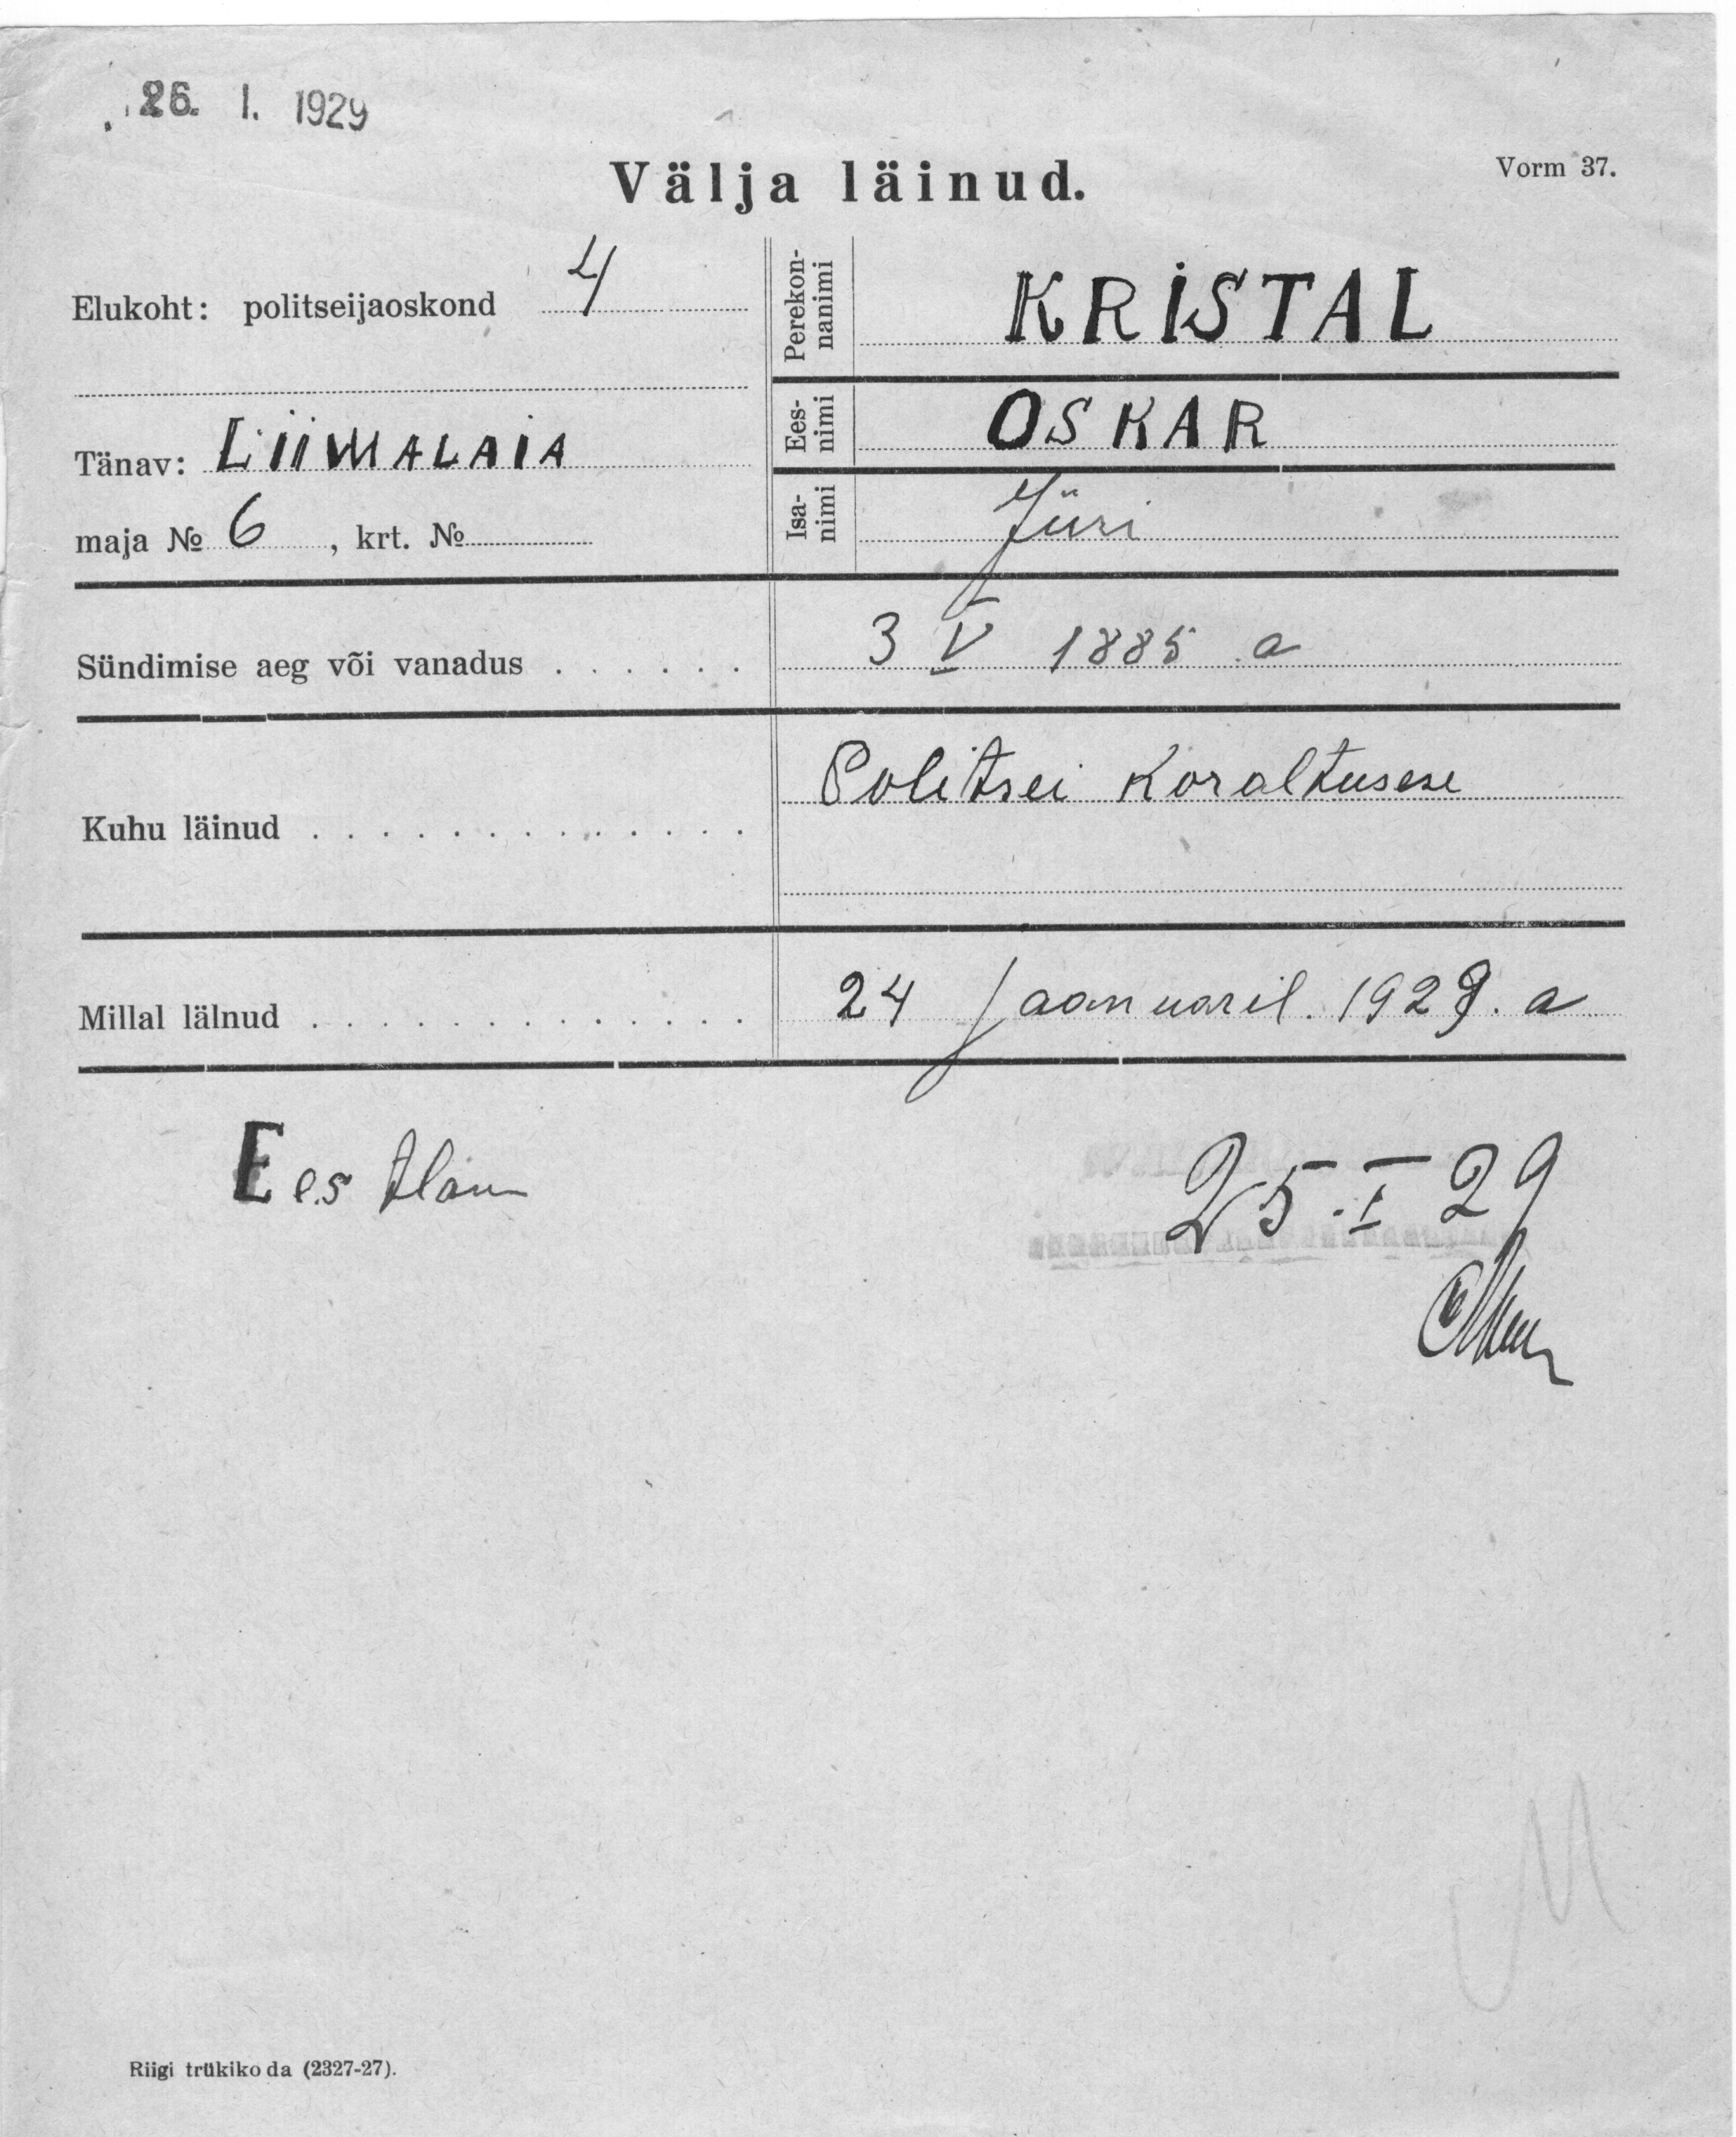 26. I. 1929
Välja läinud.
Vorm 37.
Elukoht: politseijaoskond 4
Tänav: LiiWALAIA
maja № 6, krt. №
Perekon-
nanimi
KRiSTAL
Ees-
nimi
OSKAR
Isa-
nimi
Jüri
Sündimise aeg või vanadus . . . . . . 3 V 1885 a
Kuhu läinud . . . . . . . . . . . . . Politsei Koraltusese
Millal lälnud . . . . . . . . . . . . . 24 Jaanuaril. 1929. a
Eestlane
25. I 29
Riigi trükikoda (2327-27).